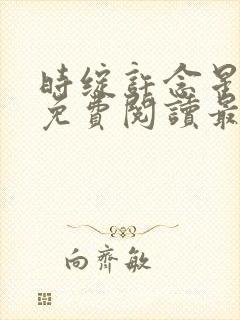 时綻許念星
免費閱讀最
向齊敏